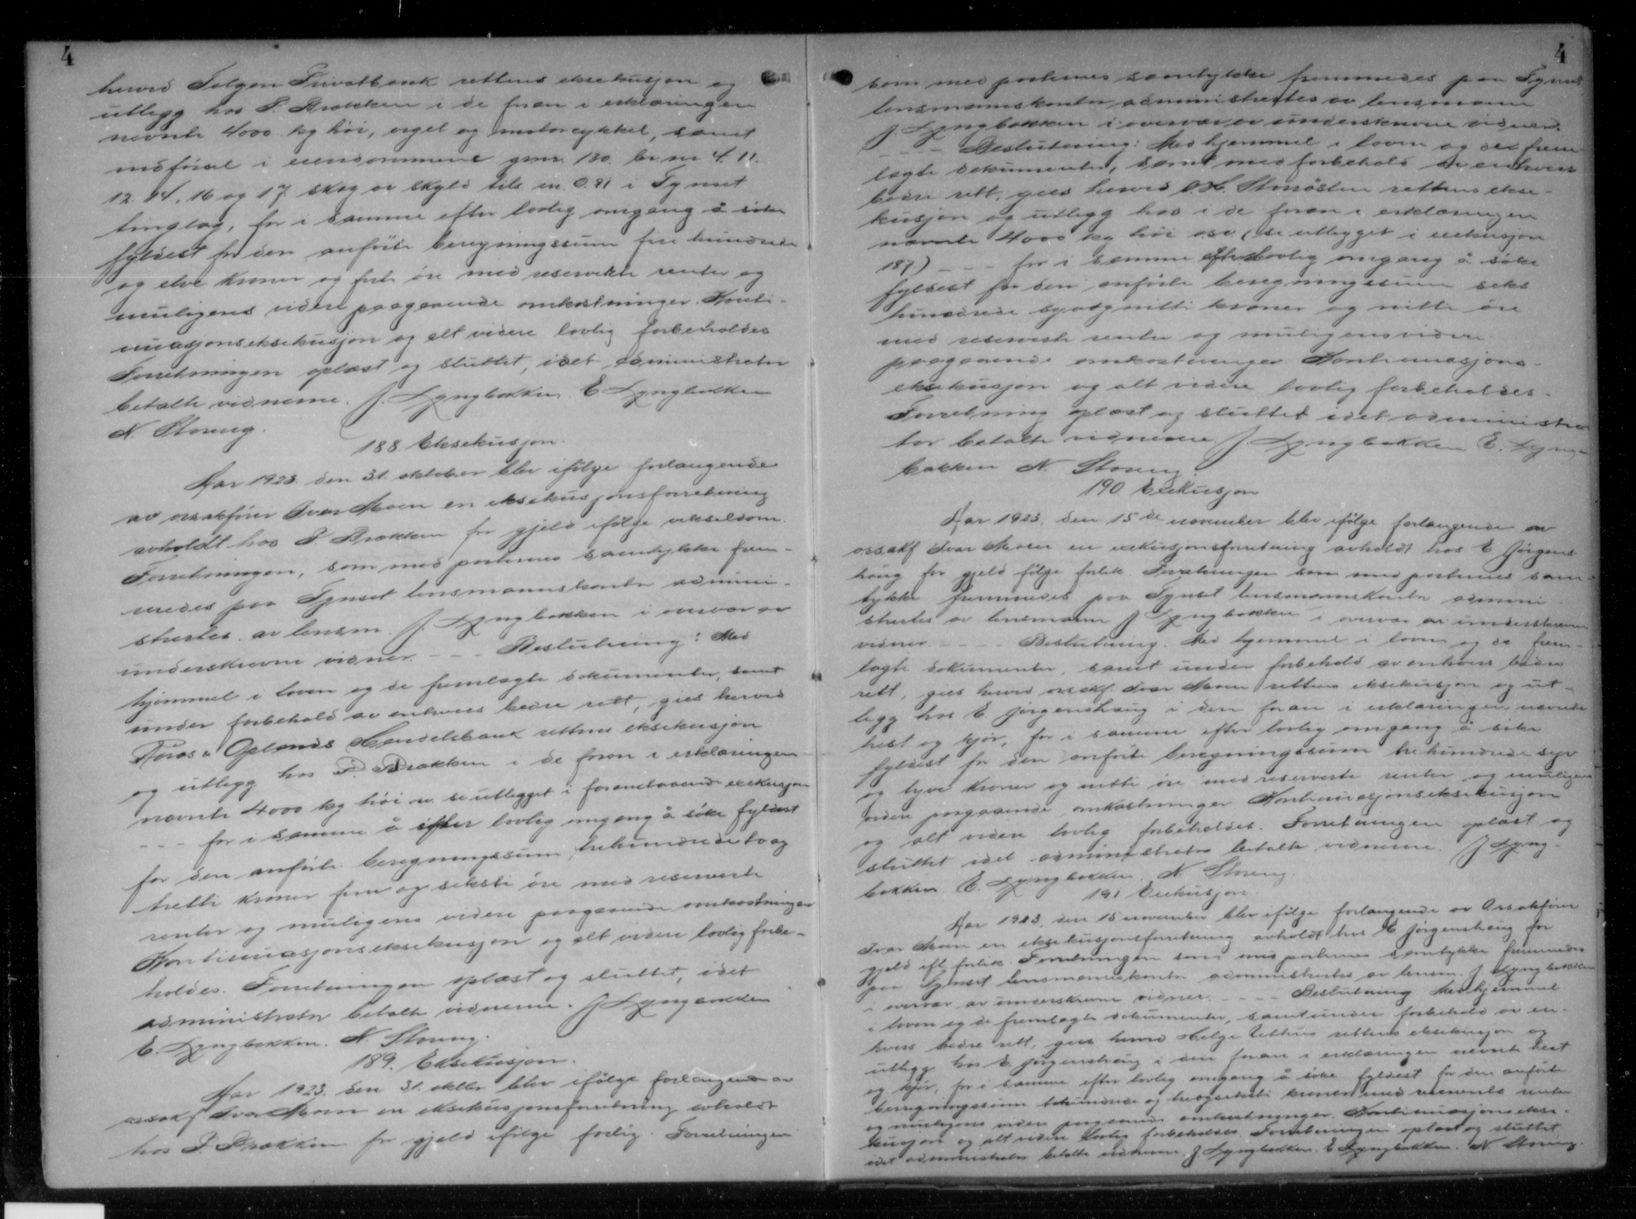 4
herved Tolgen Privatbank rettens eksekusjon og
utlegg hos P. Brakken i de foran i erklæringen
nevnte 4000 kg höi, orgel og motorcykkel, samt
indförsel i eiendommene gnr. 130 br nr 4. 11.
12. 14, 16 og 17 skog av skyld tils m. 0.91 i Tynset
tinglag, for i samme efter lovlig omgang å söke
fyldest for den anförte beregningssum fire hundrede
og elve kroner og förti öre med reserverte renter og
muligens videre paagaaende omkostninger. Konti-
nuasjonseksekusjon og alt videre lovlig forbeholdes
Forretningen oplæst og sluttet, idet administrator
betalte vidnerne. J. Lyngbakken E Lyngbakken
N Storeng.
188 Eksekusjon.
Aar 1923 den 31. oktober blev ifölge forlangende
av orsakförer Ivar Moen en eksekusjonsforretning
avholdt hos P Brakken for gjeld ifölge vekseldom.
Forretningen, som med partenes samtykke frem-
medes paa Tynset lensmannskontor admini-
strertes av lensm. J. Lyngbakken i overvær av
underskrevne vidner. - - - Beslutning: Med
hjemmel i loven og de fremlagte dokumenter, samt
under forbehold av enhvers bedre rett, gies herved
Röros & Oplands Handelsbank rettens eksekusjon
og utlegg hos P. Brakken i de foran i erklæringen
nevnte 4000 kg höi se utlegget i foranstaaende exekusjon
- - - for i samme å efter lovlig omgang å söke fyldest
for den anförte beregningssum, trehundrede to og
tretti kroner fem og seksti öre med reserverte
renter og muligens videre paagaaende omkostninger
Kontinuasjonseksekusjon og alt videre lovlig forbe-
holdes. Forretningen oplæst og sluttet, idet
administrator betalte vidnerne. J Lyngbakken
E. Lyngbakken. N. Storeng.
189. Eksekusjon.
Aar 1923 den 31. oktbr blev ifölge forlangende av
orsakf Ivar Moen en eksekusjonsforretning avholdt
hos P. Brakken for gjeld ifölge forlig. Forretningen
4
som med partenes samtykke fremmedes paa Tynset
lensmannskontor, administrertes av lensmann
J. Lyngbakken i overvær av underskrevne vidner.
- - - Beslutning: Med hjemmel i loven og de frem-
lagte dokumenter, samt med forbehold av enhvers
bedre rett, gies herved rettens ekse-
kusjon og utlegg hos i de foran i erklæringen
nævnte 4000 kg höi osv (se utlegget i exekusjon
187) - - - for i samme efter lovlig omgang å söke
fyldest for den anförte beregningssum seks
hundrede syvognitti kroner og nitti öre
med reserverte renter og muligens videre
paagaaende omkostninger. Kontinuasjons-
eksekusjon og alt videre lovlig forbeholdes.
Forretning oplæst og sluttet idet administra
tor betalte vidnerne J. Lyngbakken E. Lyng-
bakken N. Storeng
190 Exekusjon
Aar 1923, den 15 de november blev ifölge forlangende av
orsakf Ivar Moen en exekusjonsforretning avholdt hos E Jörgens-
haug for gjeld ifölge forlik Forretningen som med partenes sam-
tykke fremmedes paa Tynset lensmannskontor admini
strertes av lensmann J Lyngbakken i overvær av underskrevne
vidner - - - Beslutning. Med hjemmel i loven og de frem-
lagte dokumenter, samt under forbehold av enhvers bedre
rett, gies herved orsakf. Ivar Moen rettens eksekusjon og ut-
legg hos E. Jörgenshaug i den foran i erklæringen nevnte
hest og kjör, for i samme efter lovlig omgang å söke
fyldest for den anförte beregningssum trehundrede syv
og tyve kroner og nitti öre med reserverte renter og muligens
videre paagaaende omkostninger Kontinuasjonseksekusjon
og alt videre lovlig forbeholdes. Forretningen oplæst og
sluttet idet administrator betalte vidnerne. J Lyng-
bakken. E. Lyngbakken. N Storeng.
191 Exekusjon.
Aar 1923. den 15 november blev ifölge forlangende av Orsakförer
Ivar Moen en eksekusjonsforretning avholdt hos E Jörgenshaug for
gjeld ifl. forlik Forretningen som med partenes samtykke fremmedes
paa Tynset lensmannskontor administrertes av lensm. J Lyngbakken
i overvær av underskrevne vidner. - - - - Beslutning Med hjemmel
i loven og de fremlagte dokumenter, samt under forbehold av en-
hvers bedre rett, gies herved Helge rettens eksekusjon og
utlegg hos E Jörgenshaug i den foran i erklæringen nevnte hest
og kjör, for i samme efter lovlig omgang å söke fyldest for den anförte
beregningssum kroner med reserverte renter
og muligens videre paagaaende omkostninger. Kontinuasjonsekse-
kusjon og alt videre lovlig forbeholdes Forretningen oplæst og sluttet
idet administrator betalte vidnerne J Lyngbakken. E Lyngbakken. N Storeng.